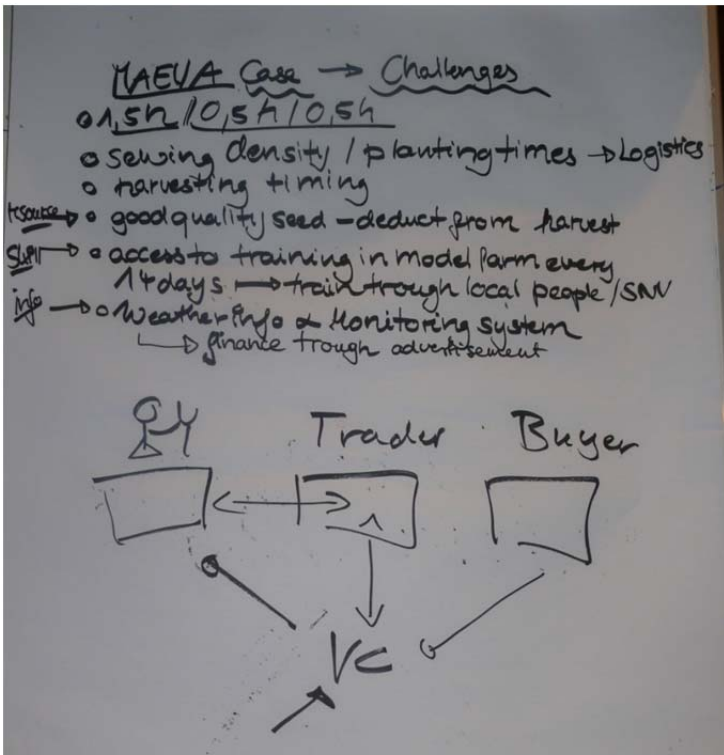 MAEVA Case → Challenges
o 1,5h / 0,5h / 0,5h
o sewing density / planting times → Logistics
o harvesting timing
resource → o good quality seed - deduct from harvest
→ o access to training in model farm every
14 days → train trough local people / SNV
info → o Weather info & Monitoring system
↳ finance trough advertisement
Trader Buyer
VC